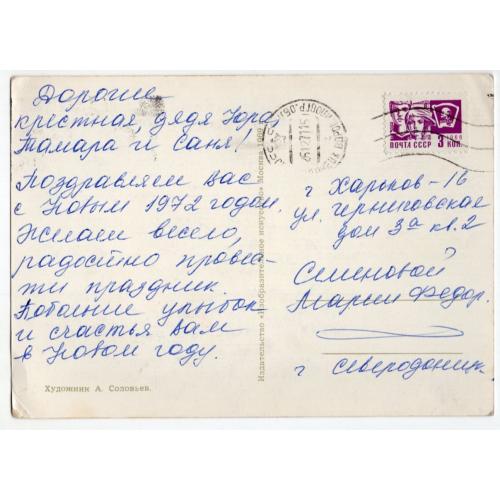 Дорогие
крестная, дядя Юра,
Тамара и Саня!
Поздравляем вас
с Новым 1972 годом.
Желаем весело,
радостно провес-
ти праздник.
Побольше улыбок
и счастья вам
в Новом году.
Художник А. Соловьев.
Издательство «Изобразительное искусство» Москва 1969
ПОЧТА СССР 3 КОП.
г Харьков-16
ул. Черниговская
дом 3а кв. 2
Семеновой
Марии Федор.
г Северодонецк